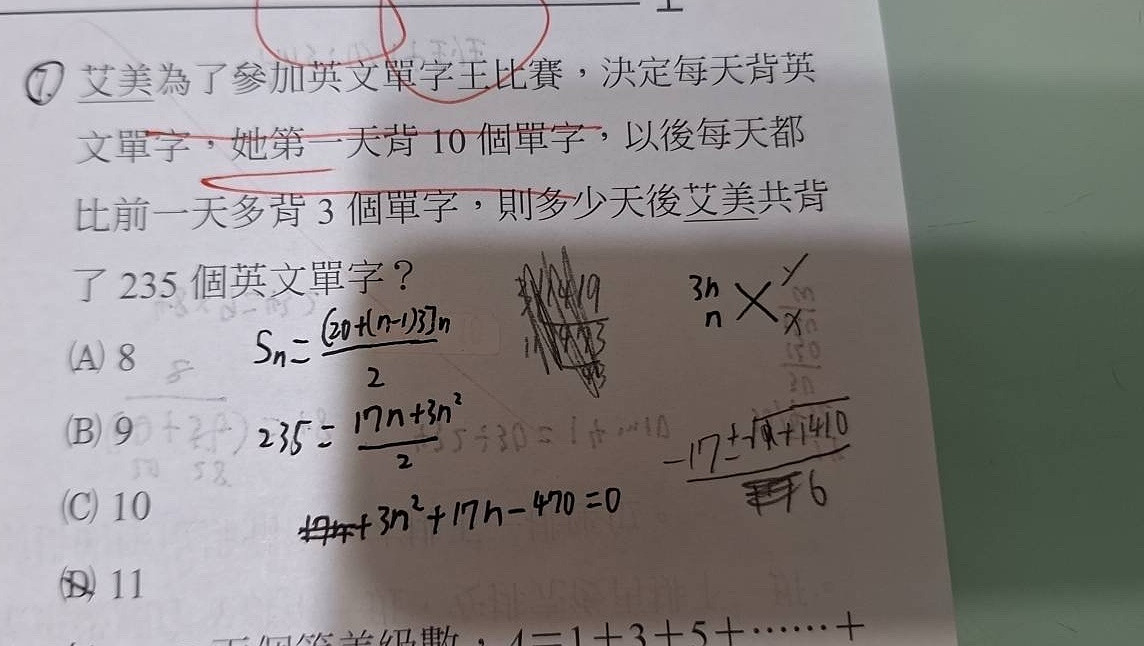 7. 艾美為了參加英文單字王比賽，決定每天背英
文單字，她第一天背 10 個單字，以後每天都
比前一天多背 3 個單字，則多少天後艾美共背
了 235 個英文單字？
(A) 8
(B) 9
(C) 10
(D) 11
Sn = (20+(n-1)3]n
2
235 = 17n+3n²
2
+3n²+17n-470=0
3n
n
-17±√
+1410
6
兩個等差級數，A=1+3+5+⋯⋯+